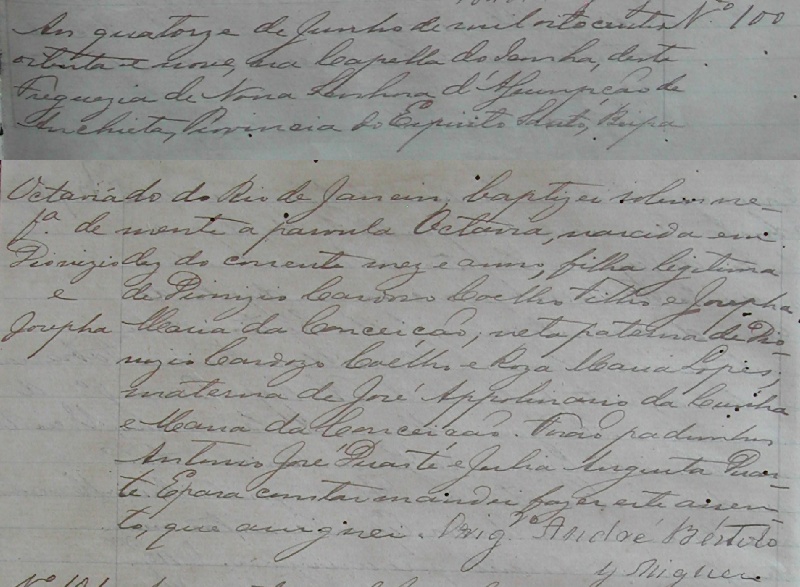 Aos quatorze de Junho de mil oito centos Nº 100
oitenta e nove, na Capella do Penha, desta
Freguezia de Nossa Senhora d'Assumpção de
Anchieta, Provincia do Espirito Santo, Bispa
Octavia do do Rio de Janeiro, baptizei solemne-
fª. de mente a parvula Octavia, nascida em
Dionizio dez do corrente mez e anno, filha legitima
e de Dionizio Cardozo Coelho Filho e Josepha
Josepha Maria da Conceição, neta paterna de Dio-
nizio Cardozo Coelho e Roza Maria Lopes,
materna de José Appolinario da Cunha
e Maria da Conceição. Forão padrinhos
Antonio José Duarte e Julia Augusta Duar-
te. E para constar mandei fazer este assen-
to, que assignei. Vigº André Bértolo
y